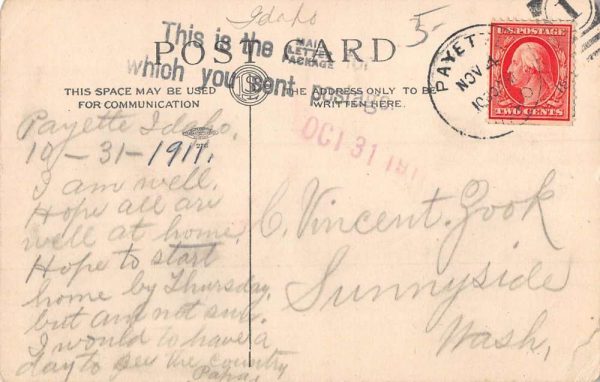 Idaho
5-
This is the
MAIL
LETTER
PACKAGE
for
which you sent postage.
POST CARD
THIS SPACE MAY BE USED
FOR COMMUNICATION
THE ADDRESS ONLY TO BE
WRITTEN HERE.
PAYETT
NOV 4
1
U.S. POSTAGE
TWO CENTS
OCT 31 191
Payette Idaho,
10-31-1911.
I am well.
Hope all are
well at home.
Hope to start
home by Thursday,
but am not sure.
I would to have a
day to see the country
Papa.
C. Vincent Zook
Sunnyside
Wash,